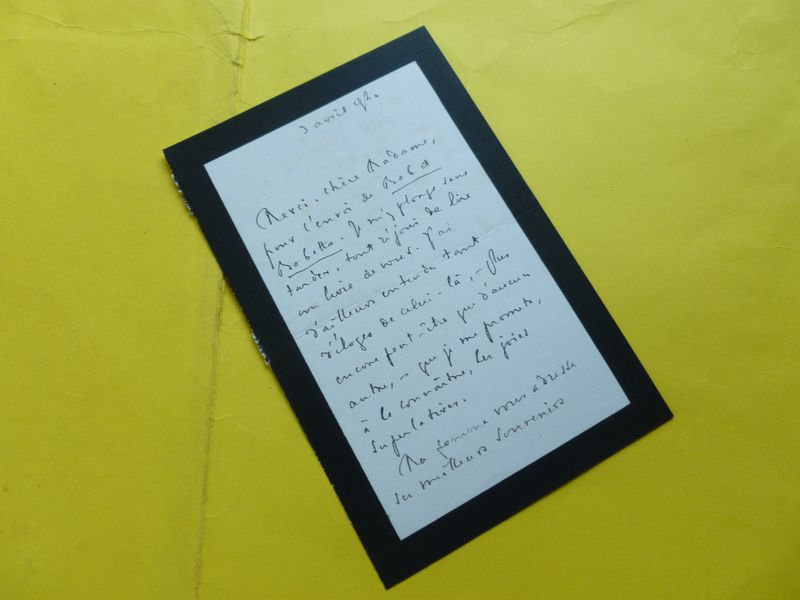 3 avril 42.
Merci, chère Madame,
pour l'envoi de Bob et
Bobette. Je m'y plonge sans
tarder, tout réjoui de lire
un livre de vous. J'ai
d'ailleurs entendu tant
d'éloges de celui-là, – plus
encore peut-être que d'aucun
autre, – que je me promets,
à le connaître, les joies
superlatives.
Ma femme vous adresse
ses meilleurs souvenirs